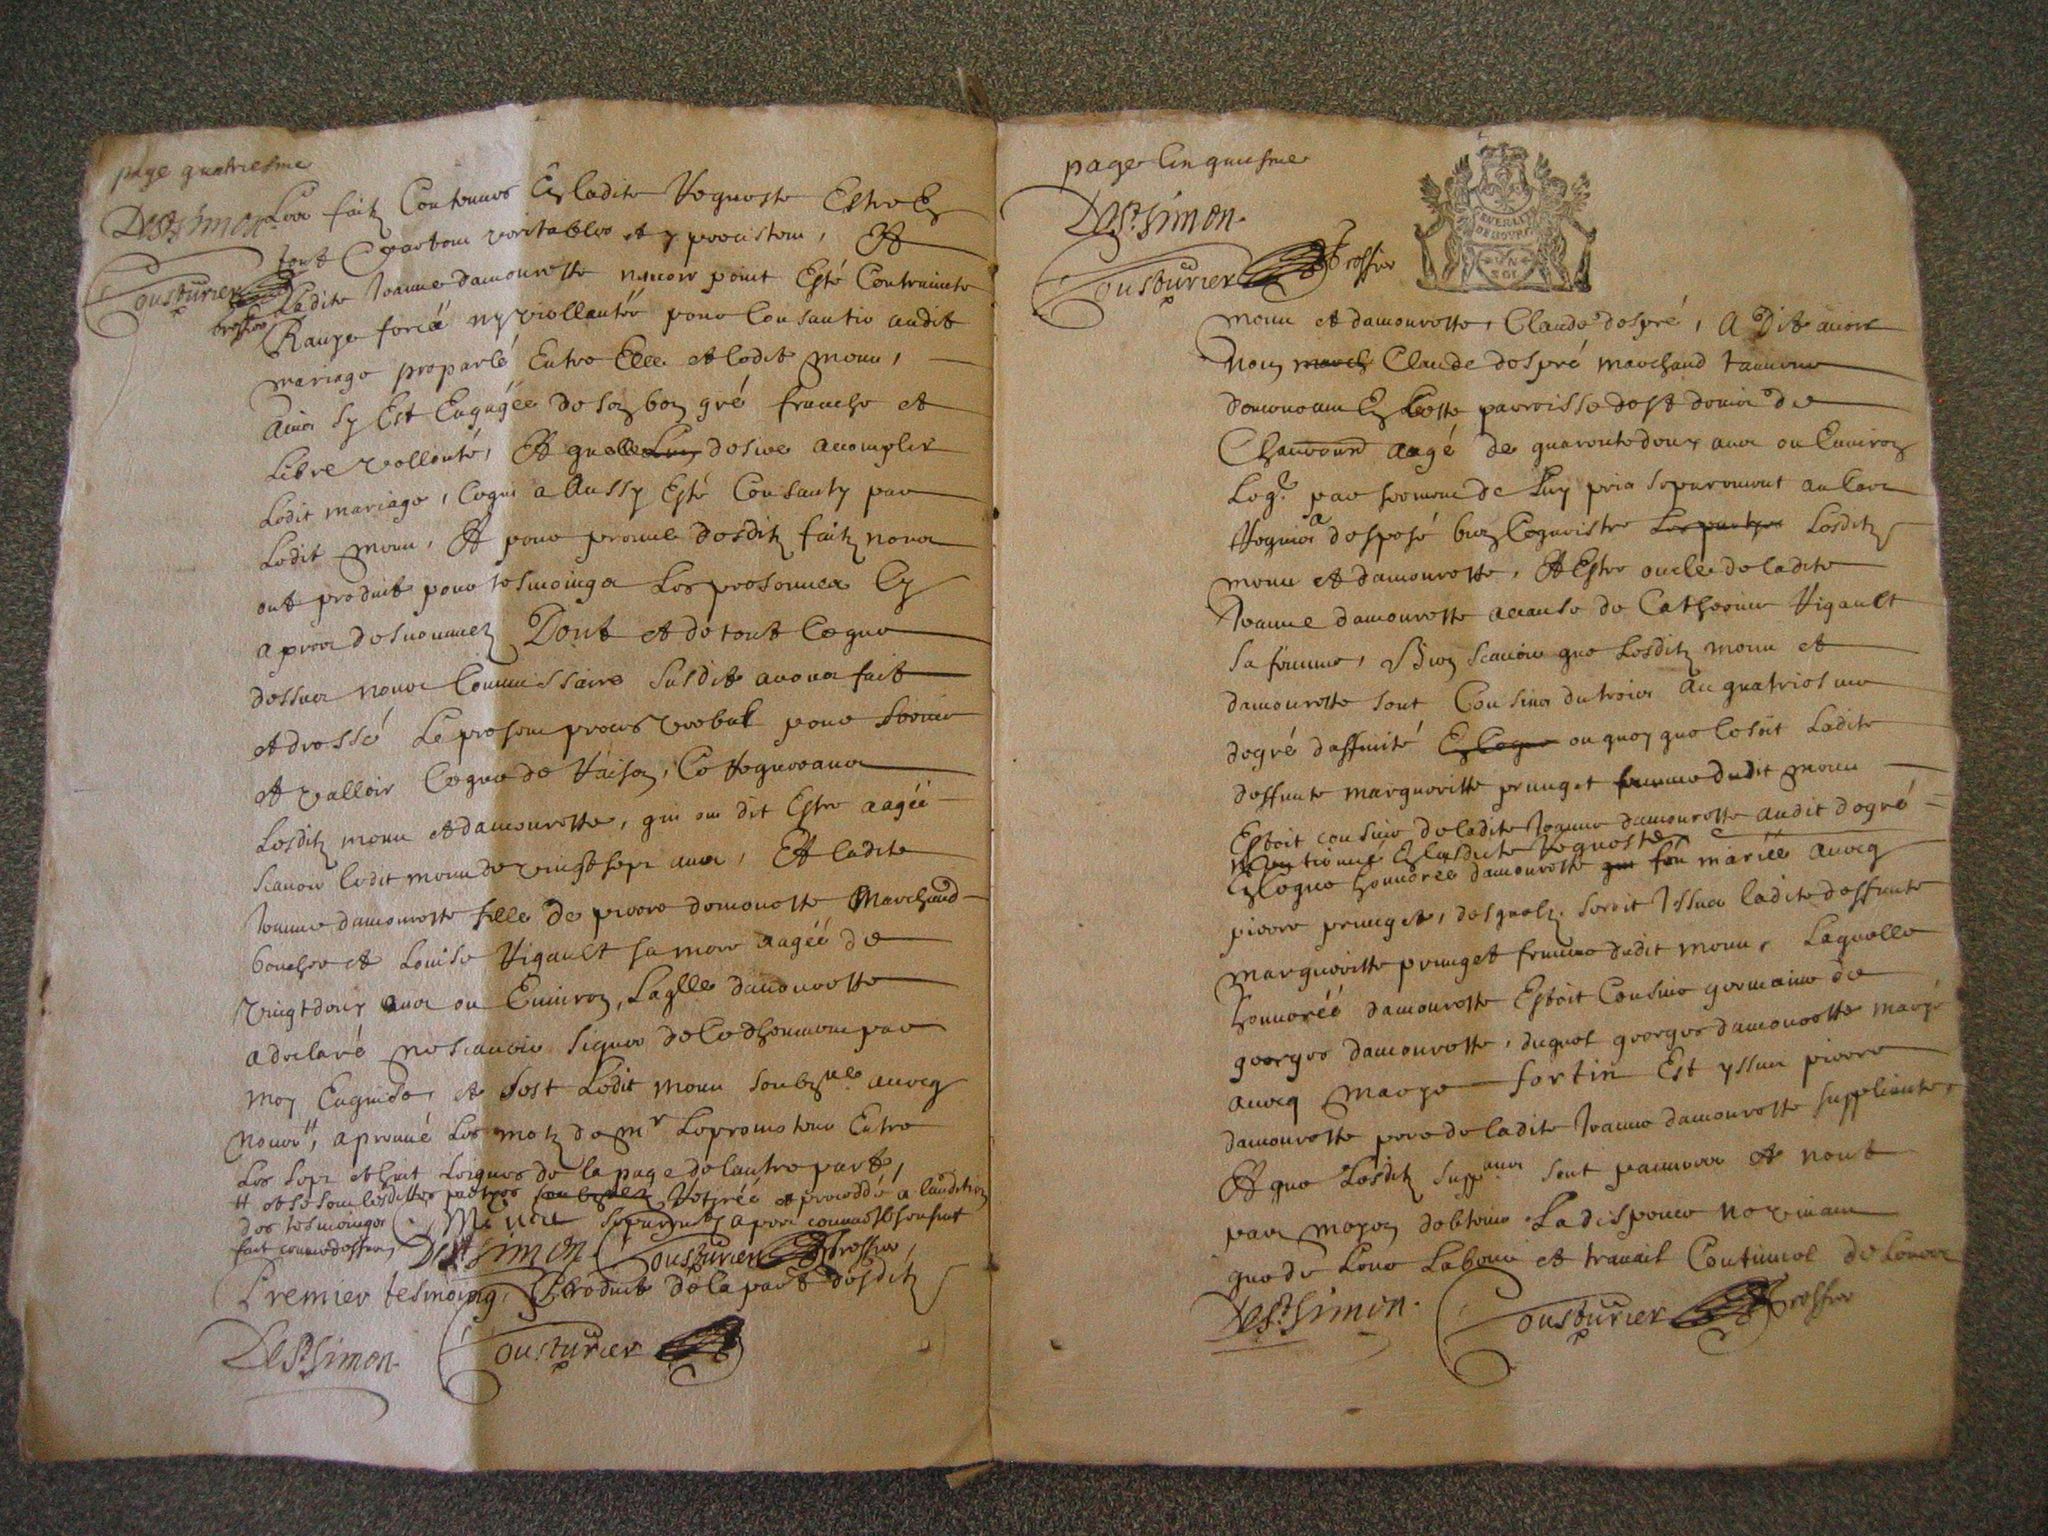 page quatriesme
Les faitz Contenus En ladite Requeste Estre En
DeSt.Simon.
tout Contenu veritables et y persistent, Et
Cousturier Greffier
Ladite Jeanne damourette navoir point Esté Contrainte
Ravye forcée ny viollentée pour Consantir audit
mariage proparlé Entre Elle et ledit monu,
Ains sy Est Engagée de son bon gré franche et
Libre vollonté, Et quelle desire acomplir
Ledit mariage, Cequi a Aussy Esté Consanty par
Ledit monu, Et pour preuve desditz faitz nous
ont produit pour tesmoings Les personnes Cy
apres desnommez Dont et de tout Ceque
dessus nous Commissaire susdit avons fait
et dressé Le presant proces verbal pour servir
et valloir Ceque de Raison, Ce Requerans
Lesditz monu et damourette, qui ont dit Estre aagée
scavoir ledit monu de vingt sept ans, Et ladite
Jeanne damourette fille de pierre damourette Marchand
boucher et Louise Rigault sa mere aagée de
vingt deux ans ou Environ, Laqlle damourette
a declaré ne scavoir signer de ce dhuement par
moy Enquise, et sest Ledit monu soubzne avecq
nous ₶, aprouvé Les motz de mr Le promoteur Entre
Les sept et huit Leignes de la page de lautre part,
₶ et se sont lesdittes parties Retirée et procedde a laudition
des tesmoings separement apres
fait comme dessus, DeSt.Simon Cousturier Greffier
Premier tesmoing, Produit de la part desditz
DeSt.Simon. Cousturier
page Cinquiesme
DeSt.Simon.
Cousturier Greffier
GENERALITE
DE BOURGES
UN
SOL
monu et damourette, Claude despré, A Dit avoir
Nom march Claude despré marchand tanneur
demeurant En Cette parroisse de St denis de
aagé de quarente deux ans ou Environ
Leql. par serment de Luy pris separement au Cas
Requis a desposé bien Cognoistre Les partyes Lesditz
monu et damourette, Et Estre oncle de ladite
Jeanne damourette acause de Catherine Rigault
sa femme, Bien scavoir que Lesditz monu et
damourette sont Cousins du trois au quatriesme
degré daffinité En Ceque ou quoy que ce soit Ladite
deffunte margueritte prunget femme dudit monu
Estoit cousine de ladite Jeanne damourette audit degré
mentionné En lasdite Requeste
En Ceque honnorée damourette qui fut mariée avecq
pierre prunget, desquelz seroit Issue ladite deffunte
margueritte prunget femme dudit monu, Laquelle
honnorée damourette Estoit Cousine germaine de
georges damourette, duquel georges damourette maryé
avecq marye fortin Est yssu pierre
damourette pere de ladite Jeanne damourette suppliante,
Et que Lesditz suppans sont pauvres et nont
pas moyen dobtenir La dispence ne vivant
que de Leur Labeur et travail Continuel de Leurs
DeSt.Simon. Cousturier Greffier